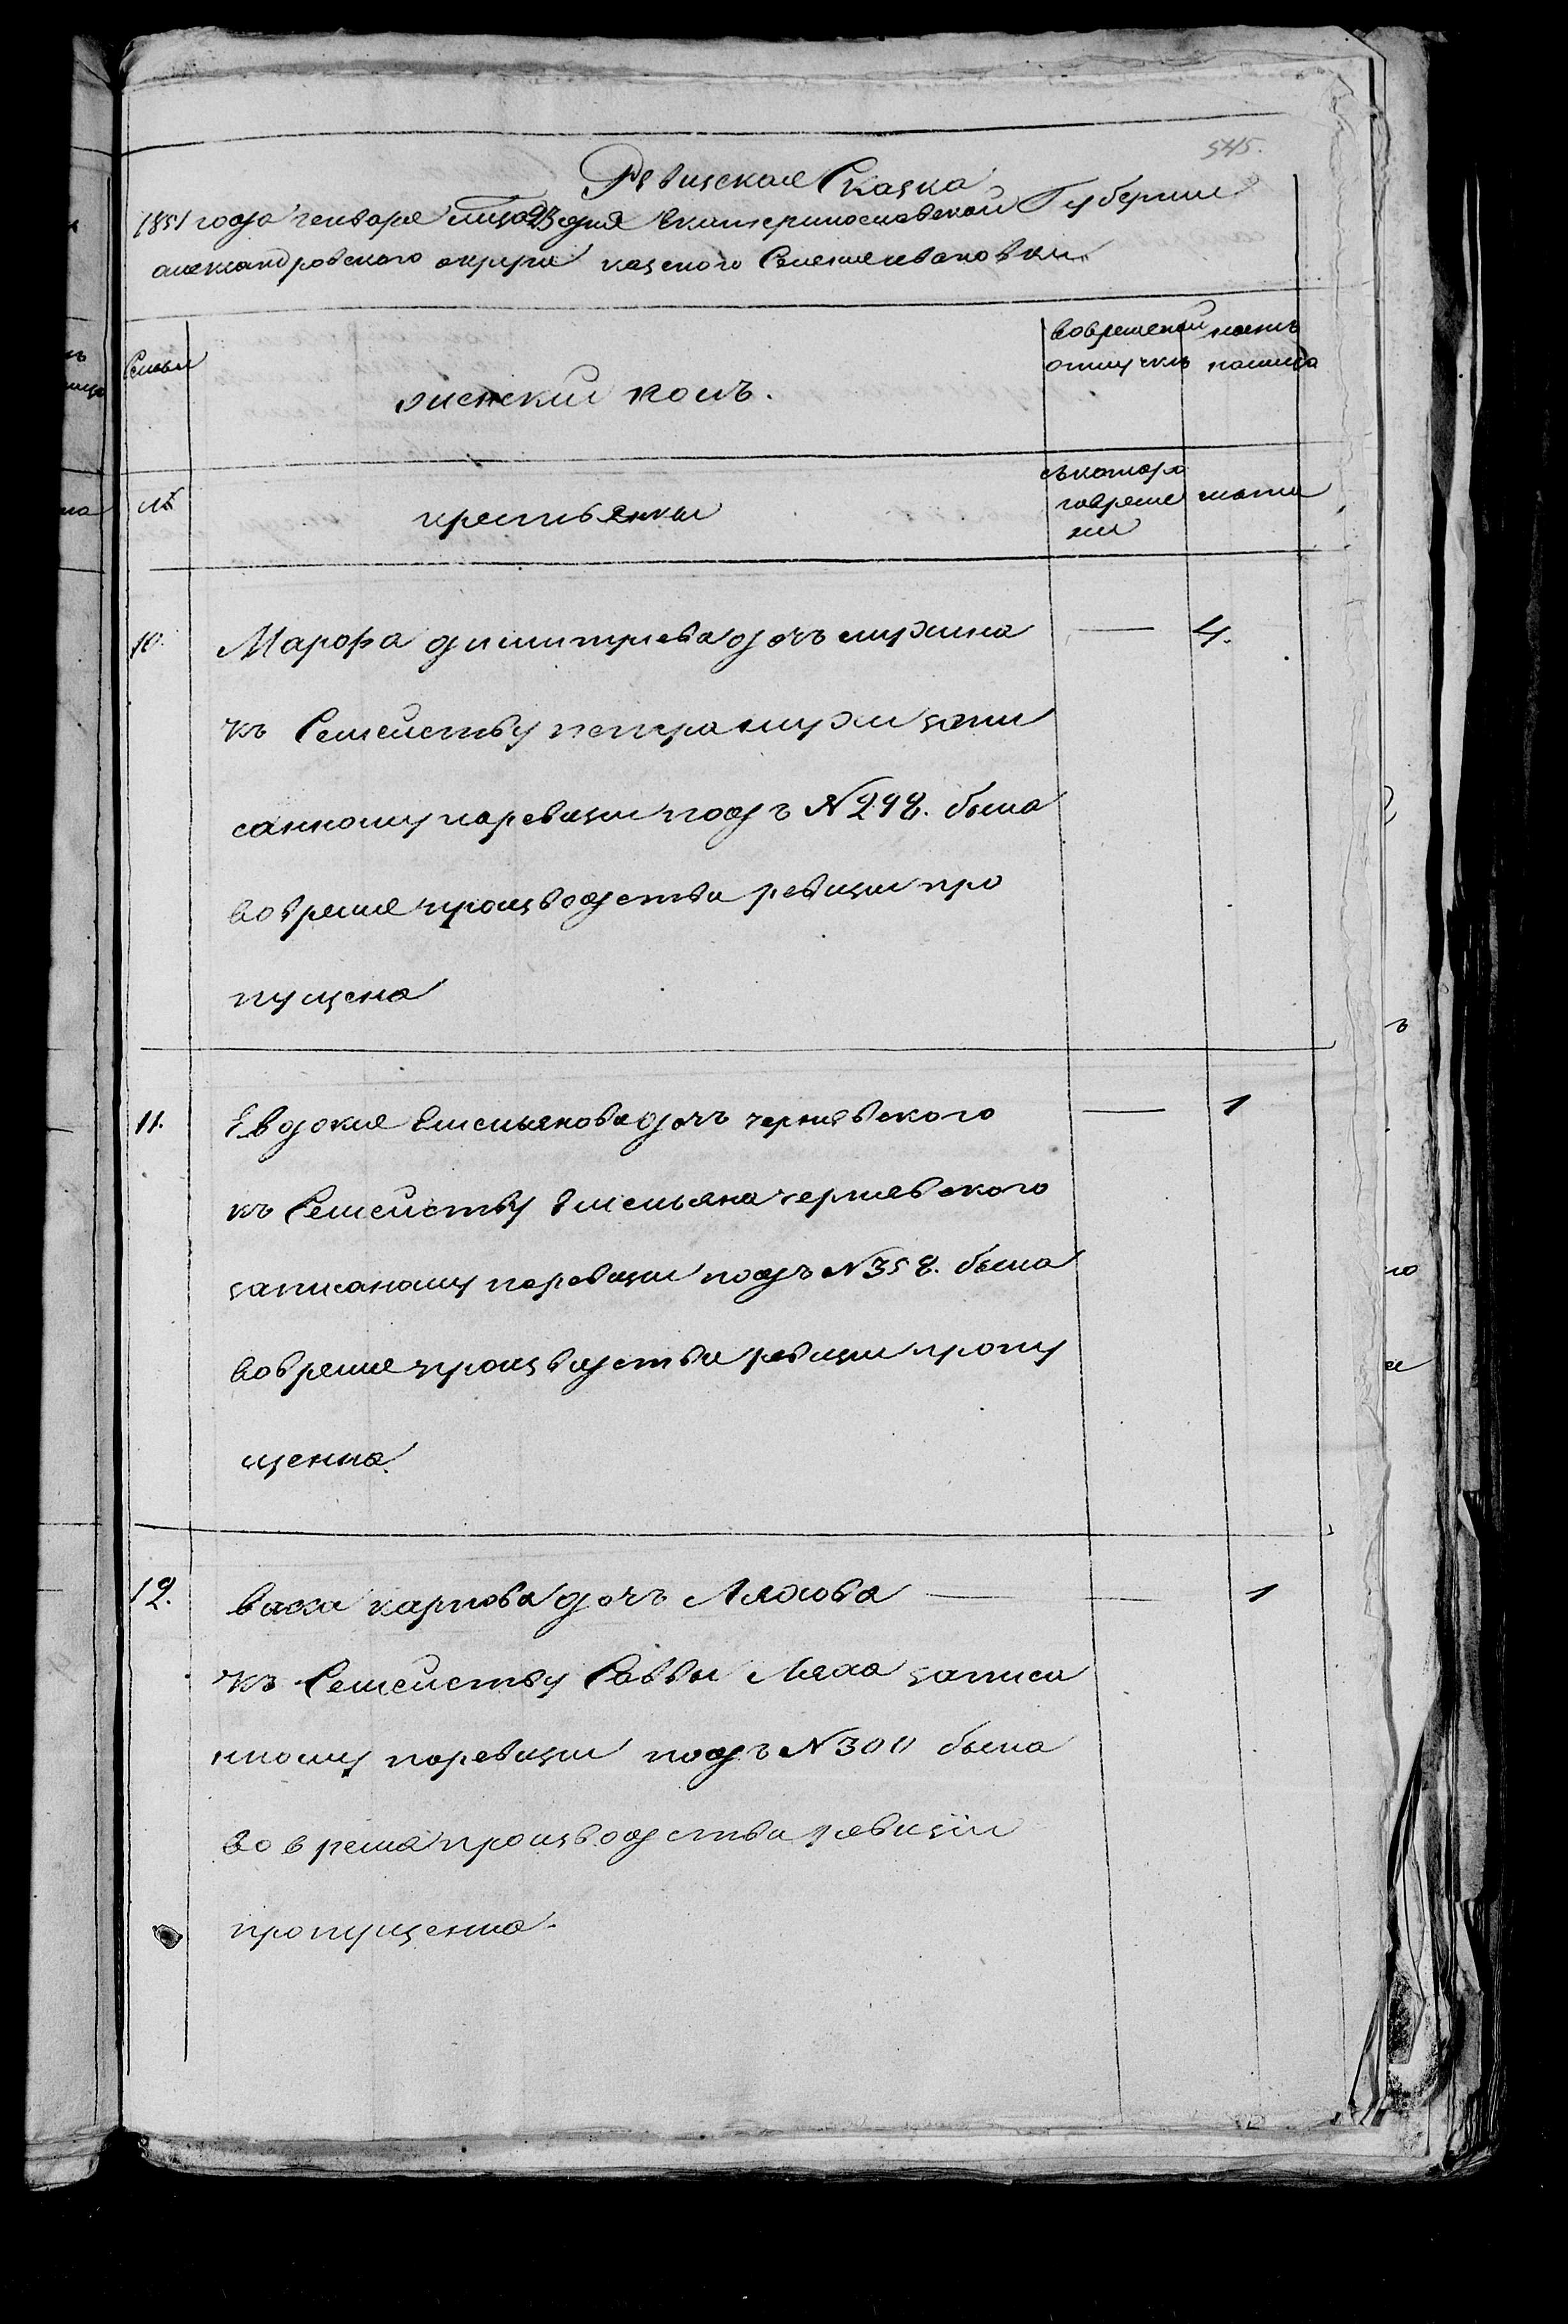 545.
Ревизская Сказка
1851 года генваря 23 дня Екатеринославской Губернии
александровского округа казеного Селения
Семьи
женский полъ.
вовременой
отлучкѣ
нынѣ
налицо
№
крестьянки
съкотора
говреме
ни
лѣта
10.
Марфа димитриева дочь мужина
— 4.
къ Семейству петра мужи запи
санному поревизии подъ N 298. была
вовремя производства ревизии про
пущена
11.
Евдокия Емельянова дочь чернявского
— 1
къ Семейству Емельяна чернявского
записаному поревизии подъ N 358. была
вовремя производства ревизии пропу
щенна.
12.
васса карпова дочь Ляхова —
— 1
къ Семейству Саввы Ляха записа
нному поревизии подъ N 300 была
во время производства ревизіи
пропущенна.